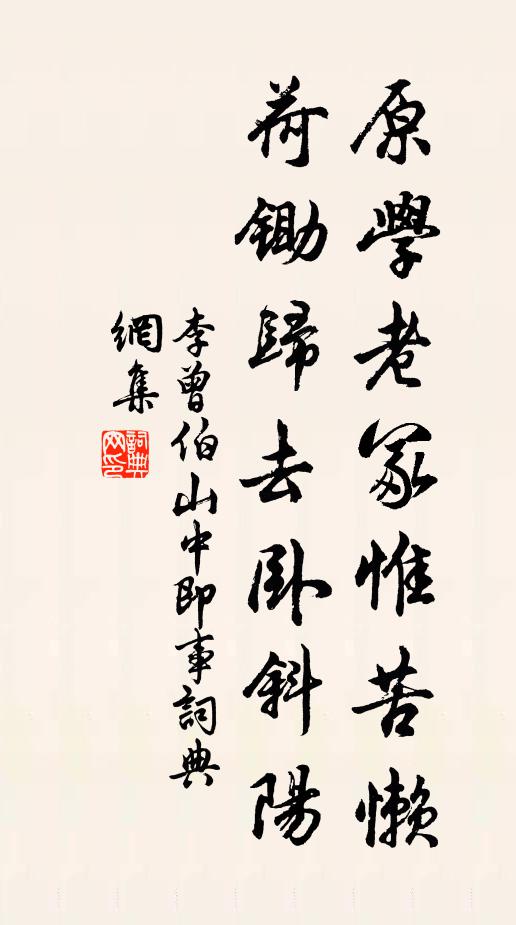 原學老冢惟苦懶
荷鋤歸去卧斜陽
李曾伯山中即事詞典
網集
詞典
网印